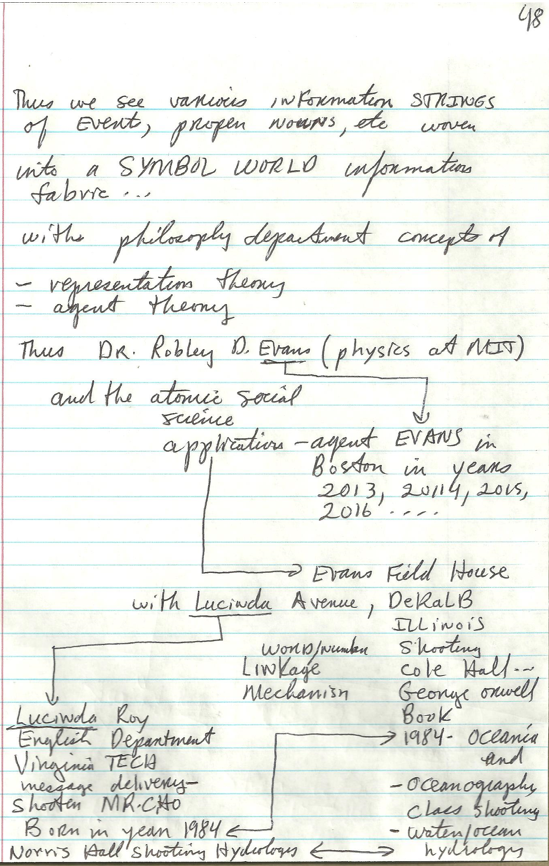 48
Thus we see various information STRINGS
of Event, proper nouns, etc woven
into a SYMBOL WORLD information
fabric ...
with philosophy department concepts of
- representation theory
- agent theory
Thus DR. Robley D. Evans (physics at MIT)
and the atomic social
science
application - agent EVANS in
Boston in years
2013, 20114, 2015,
2016 ....
Evans Field House
with Lucinda Avenue, DeKalB
ILLINOIS
word/number
Linkage
Mechanism
Shooting
Cole Hall...
George orwell
Book
1984 - Oceania
and
- Oceanography
Class shooting
- water/ocean
hydrologes
Lucinda Roy
English Department
Virginia TECH
message delivery-
Shooter MR. CHO
Born in year 1984
Norris Hall Shooting Hydrologes